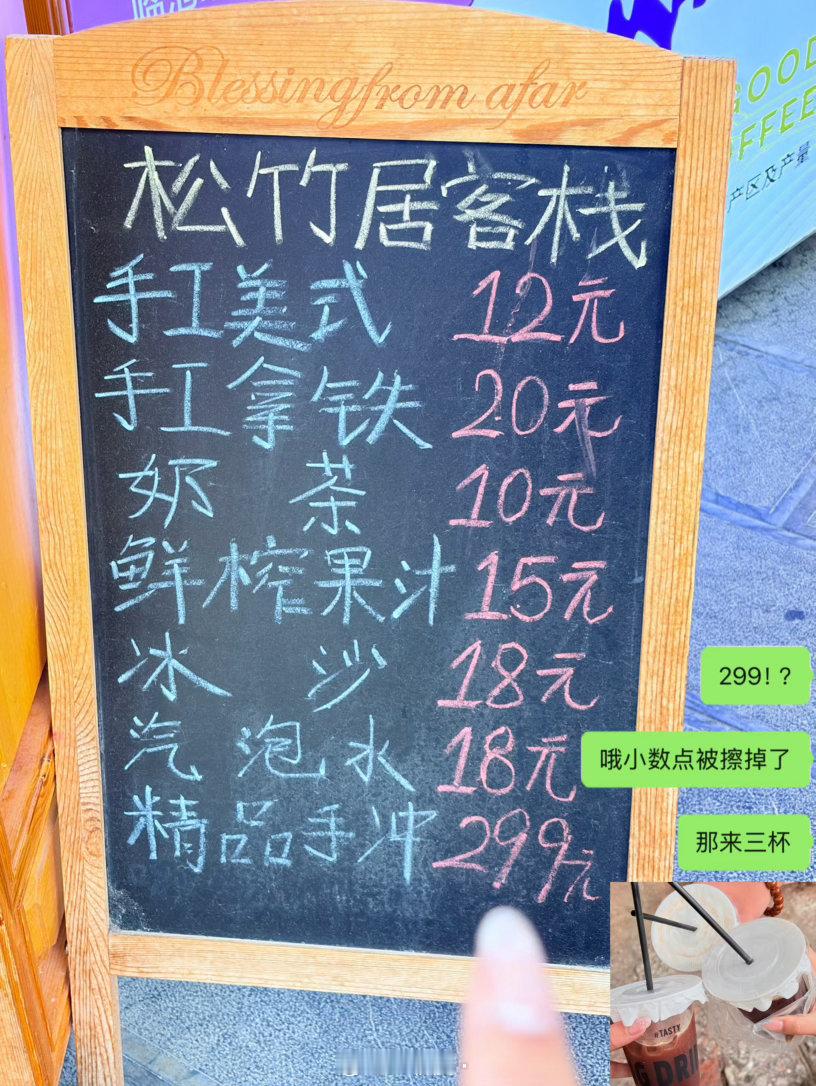 Blessing from afar
GOOD
产区及产量
松竹居客栈
手工美式 12元
手工拿铁 20元
奶茶 10元
鲜榨果汁 15元
冰沙 18元
汽泡水 18元
精品手冲 299元
299!?
哦小数点被擦掉了
那来三杯
#TASTY